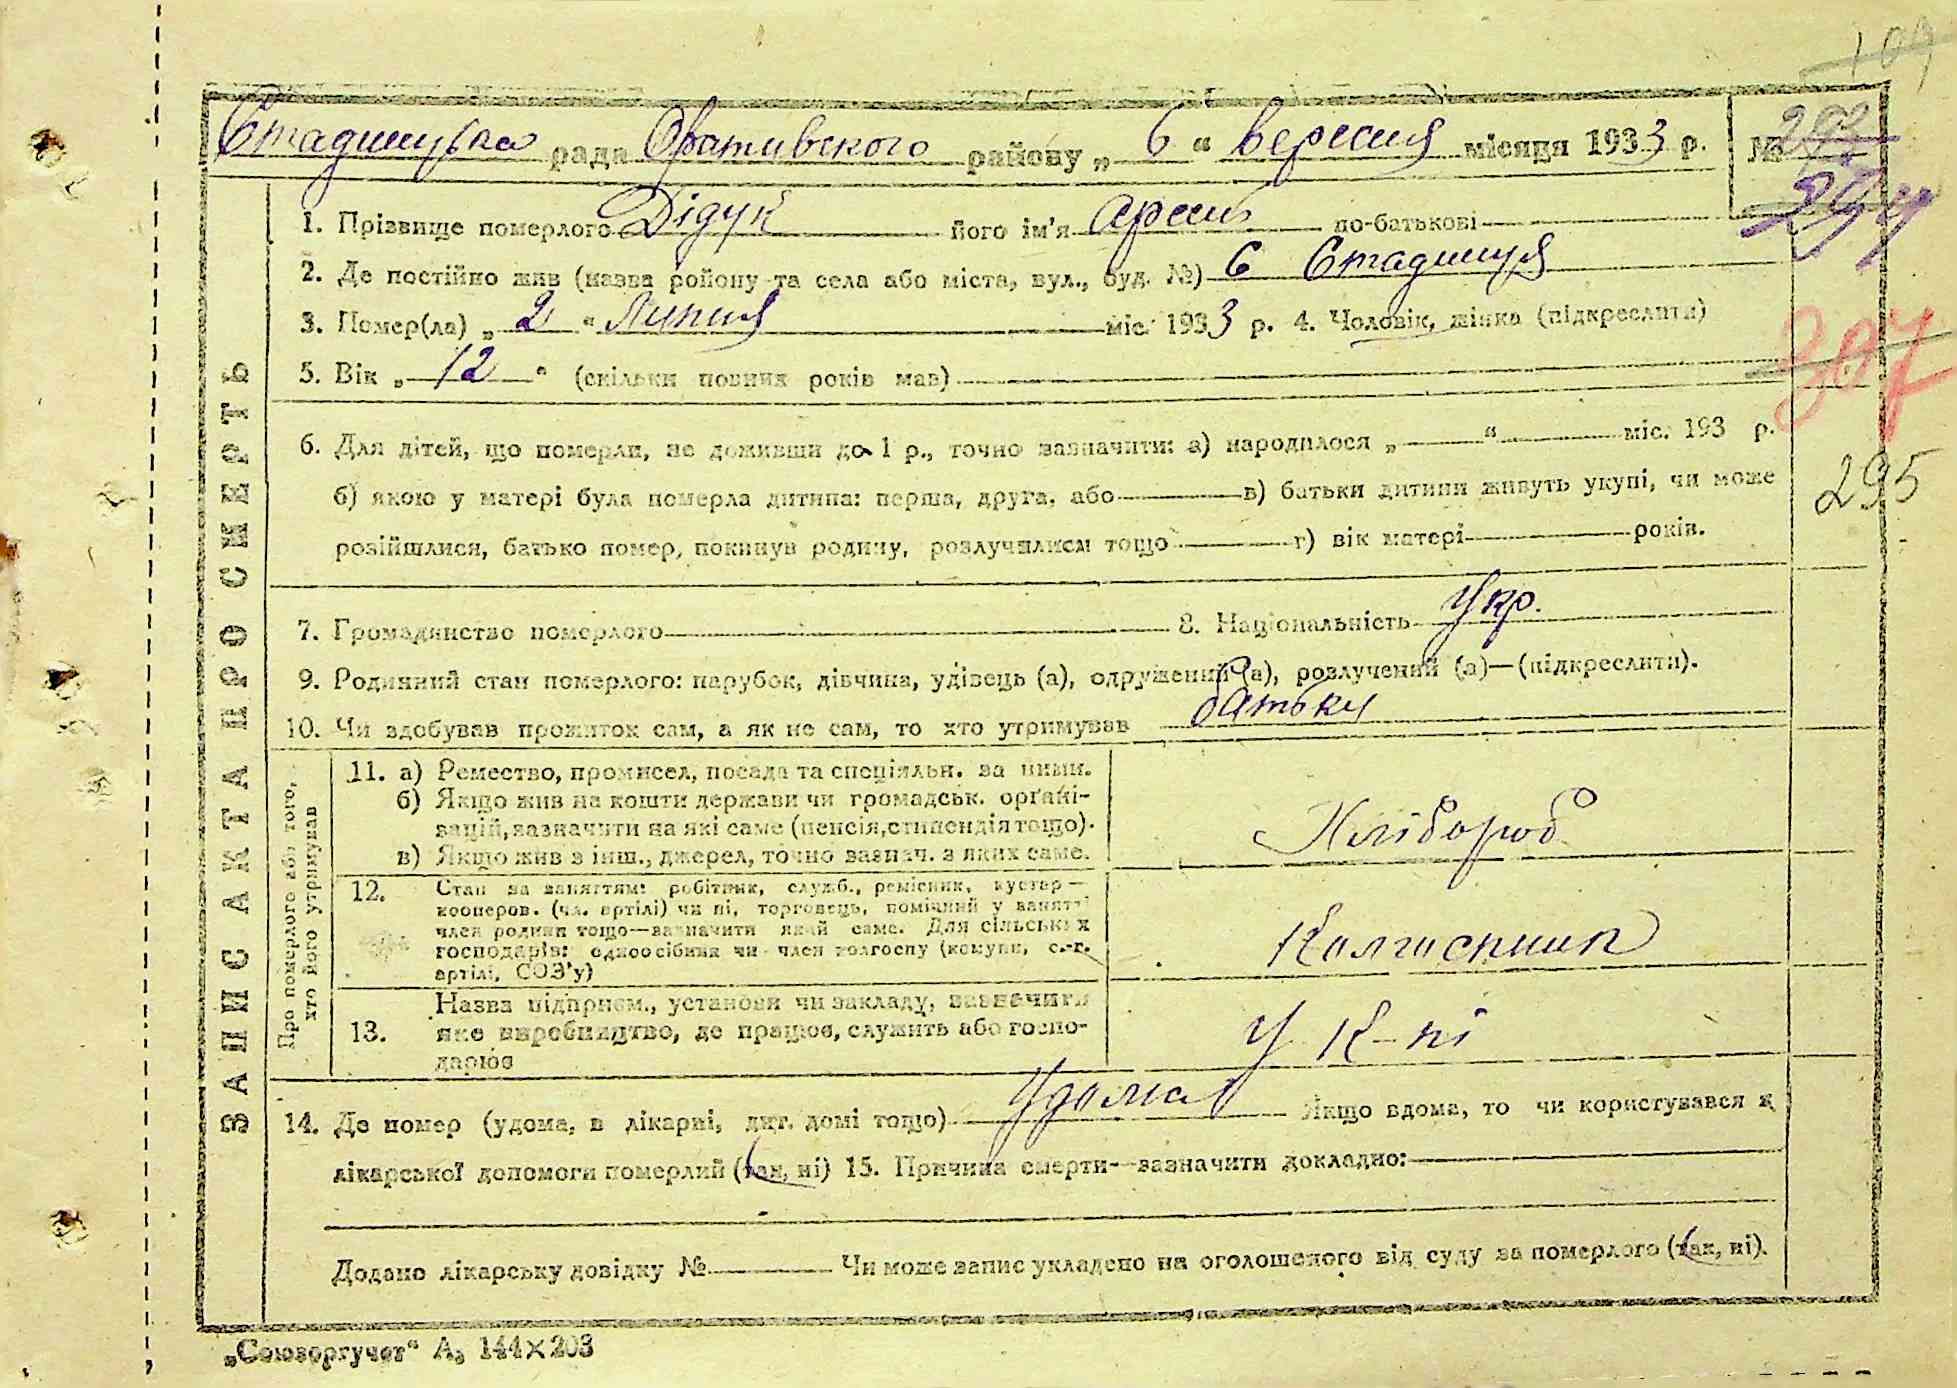 109
Стадницька рада Оратівського району „ 6 “ вересня місяця 1933 р. №
294
1. Прізвище померлого Дідук його ім'я Арсен по-батькові
2. Де постійно жив (назва району та села або міста, вул., буд. №) с Стадниця
3. Помер(ла) „ 2 “ Липня міс. 1933 р. 4. Чоловік, жінка (підкреслити)
307
5. Вік „ 12 “ (скільки повних років мав)
6. Для дітей, що померли, не доживши до 1 р., точно зазначити: а) народилося „ “ міс. 193 р.
б) якою у матері була померла дитина: перша, друга, або в) батьки дитини живуть укупі, чи може
295
розійшлися, батько помер, покинув родину, розлучилися тощо г) вік матері років.
7. Громадянство померлого 8. Національність Укр.
9. Родинний стан померлого: парубок, дівчина, удівець (а), одружений (а), розлучений (а)—(підкреслити).
10. Чи здобував прожиток сам, а як не сам, то хто утримував батьки
ЗАПИС АКТА ПРО СМЕРТЬ
Про померлого або того,
хто його утримував
11. а) Ремество, промисел, посада та спеціяльн. за ними.
б) Якщо жив на кошти держави чи громадськ. органі-
зацій, зазначити на які саме (пенсія, стипендія тощо).
в) Якщо жив з інш., джерел, точно зазнач. з яких саме.
Хлібороб
12. Стан за заняттям: робітник, служб., ремісник, кустар—
кооперов. (чл. артілі) чи ні, торговець, помічний у занятті
член родини тощо—зазначити який саме. Для сільських
господарів: одноосібник чи член колгоспу (комуни, с.-г.
артілі, СОЗ'у)
Колгоспник
13. Назва підприєм., установи чи закладу, зазначити
яке виробництво, де працює, служить або госпо-
дарює
У К-пі
14. Де помер (удома, в лікарні, дит. домі тощо) Удома Якщо вдома, то чи користувався з
лікарської допомоги померлий (так, ні) 15. Причина смерти—зазначити докладно:
Додано лікарську довідку № Чи може запис укладено на оголошеного від суду за померлого (так, ні).
„Союзоргучет“ А5 144×203